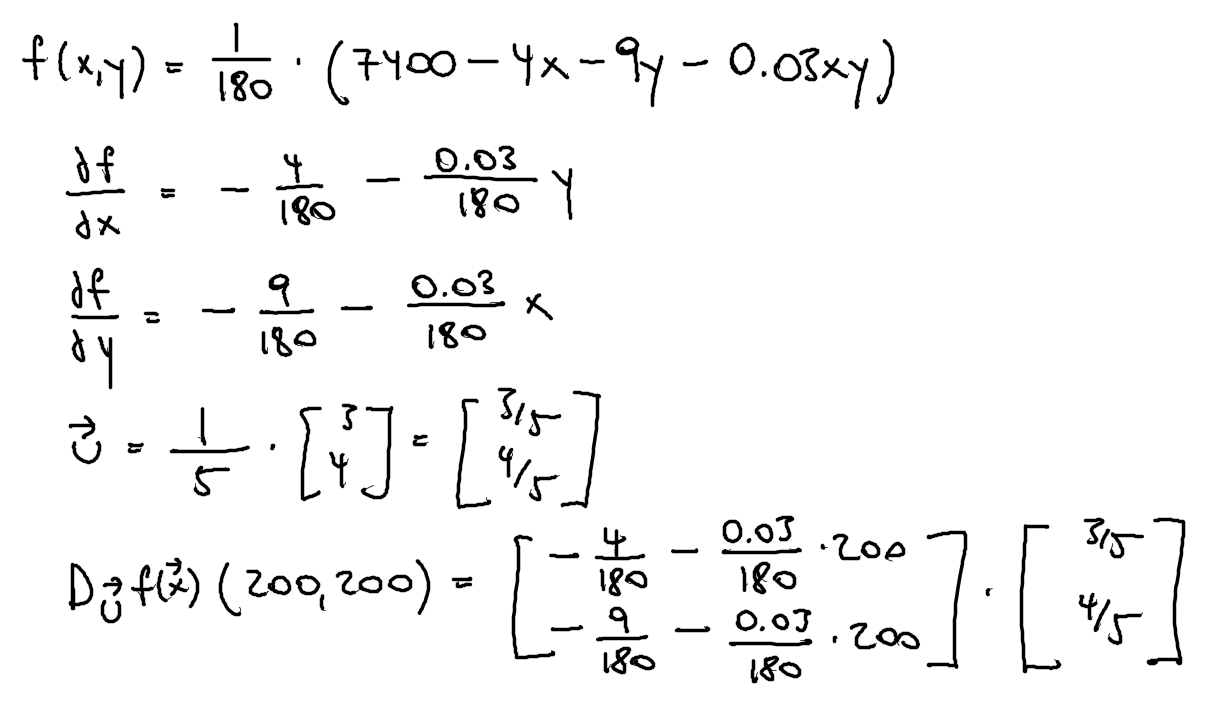 f(x,y) = 1/180 · (7400 − 4x − 9y − 0.03xy)
∂f/∂x = − 4/180 − 0.03/180 y
∂f/∂y = − 9/180 − 0.03/180 x
u⃗ = 1/5 · [3 4] = [3/5 4/5]
D_u⃗ f(x⃗) (200,200) = [− 4/180 − 0.03/180 · 200 − 9/180 − 0.03/180 · 200] · [3/5 4/5]